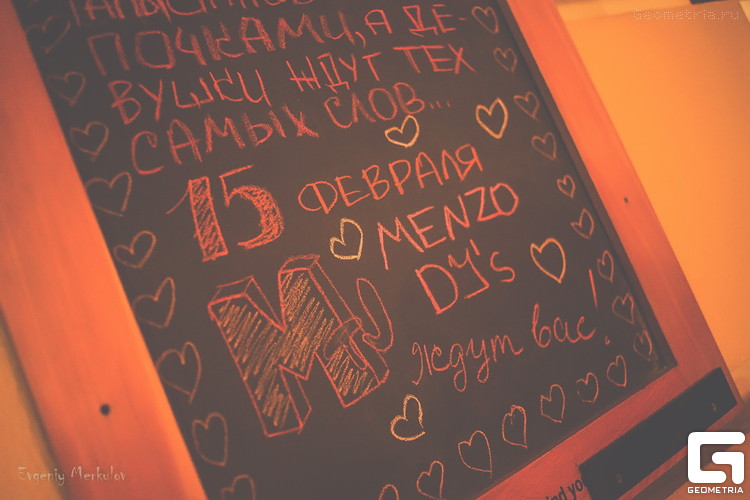 ПОЧКАМИ, А ДЕ-
ВУШКИ ЖДУТ ТЕХ
САМЫХ СЛОВ...
15 ФЕВРАЛЯ
MENZO
DJ'S
M
ждут вас!
Geometria.ru
Evgeniy Merkulov
GEOMETRIA